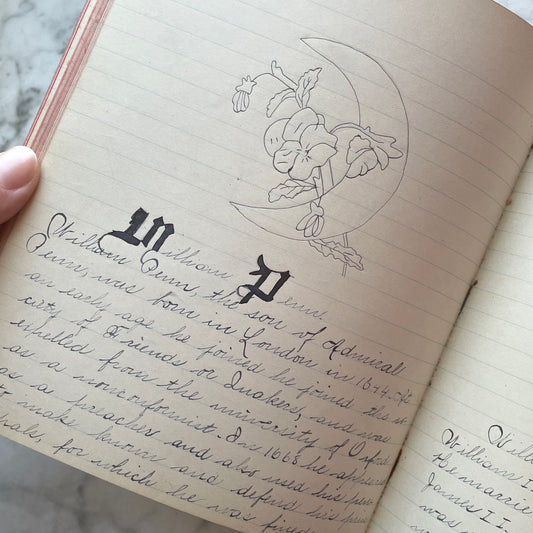 William Penn
William Penn, the son of Admiral
Penn, was born in London in 1644. At
an early age he joined he joined the so
ciety of Friends or Quakers, and was
expelled from the university of Oxford
as a nonconformist. In 1668 he appeared
as a preacher and also used his pen
to make known and defend his prin
pals, for which he was fined
Will
William I
He married
James II
was